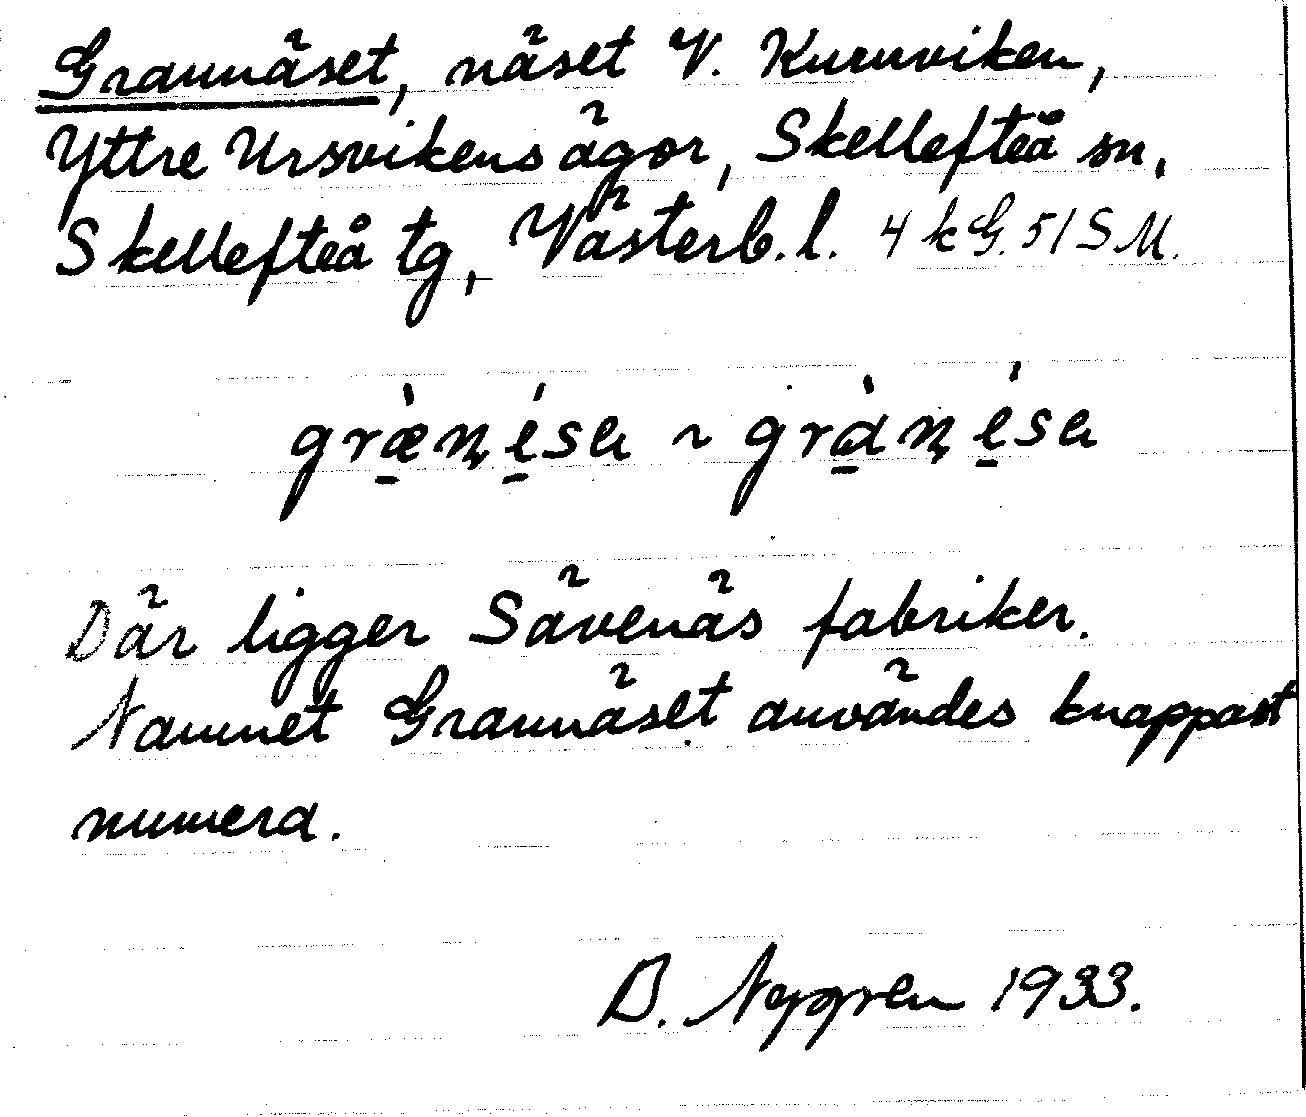 Grannäset, näset V. Kurrviken,
Yttre Ursvikens ägor, Skellefteå sn,
Skellefteå tg, Västerb. l. 4 k G. 51 S M.
græ̀nésa ~ grànésa
Där ligger Sävenäs fabriker.
Namnet Grannäset användes knappast
numera.
B. Nygren 1933.